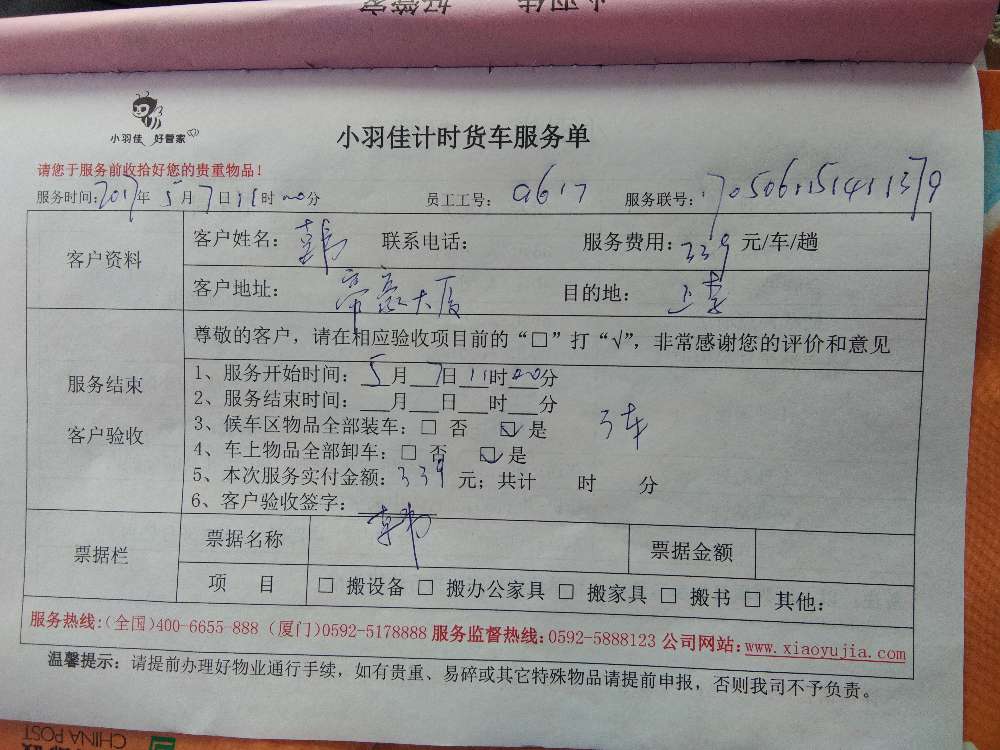 小羽佳 好管家
小羽佳 好管家
小羽佳计时货车服务单
请您于服务前收拾好您的贵重物品！
服务时间：2017年5月7日11时00分 员工工号：a617 服务联号：
客户资料 客户姓名：韩 联系电话： 服务费用：339 元/车/趟
客户地址：帝豪大厦 目的地：上李
尊敬的客户，请在相应验收项目前的“□”打“√”，非常感谢您的评价和意见
服务结束
客户验收
1、服务开始时间：5月7日11时00分
2、服务结束时间：___月___日___时___分
3、候车区物品全部装车：□ 否 ☑ 是 3车
4、车上物品全部卸车：□ 否 ☑ 是
5、本次服务实付金额：339 元；共计 时 分
6、客户验收签字：韩
票据栏 票据名称 票据金额
项 目 □ 搬设备 □ 搬办公家具 □ 搬家具 □ 搬书 □ 其他：
服务热线：(全国)400-6655-888 (厦门)0592-5178888 服务监督热线：0592-5888123 公司网站：www.xiaoyujia.com
温馨提示：请提前办理好物业通行手续，如有贵重、易碎或其它特殊物品请提前申报，否则我司不予负责。
CHINA POST